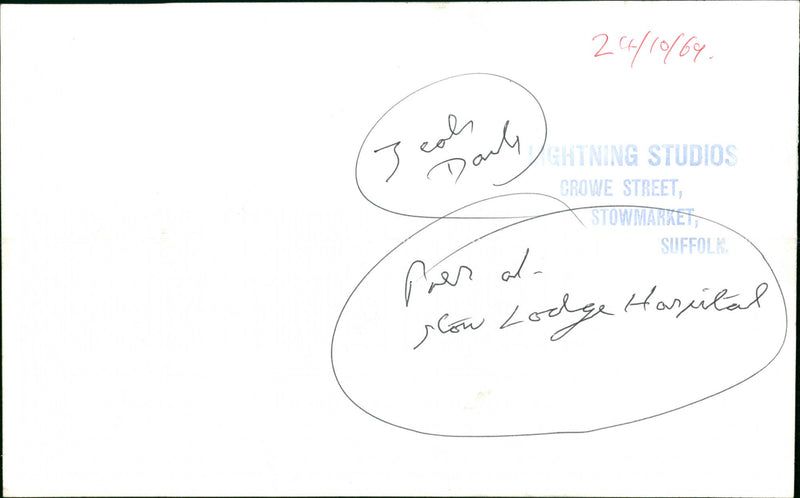 24/10/69.
3 cols
Daily
LIGHTNING STUDIOS
CROWE STREET,
STOWMARKET,
SUFFOLK.
at
Stow Lodge Hospital